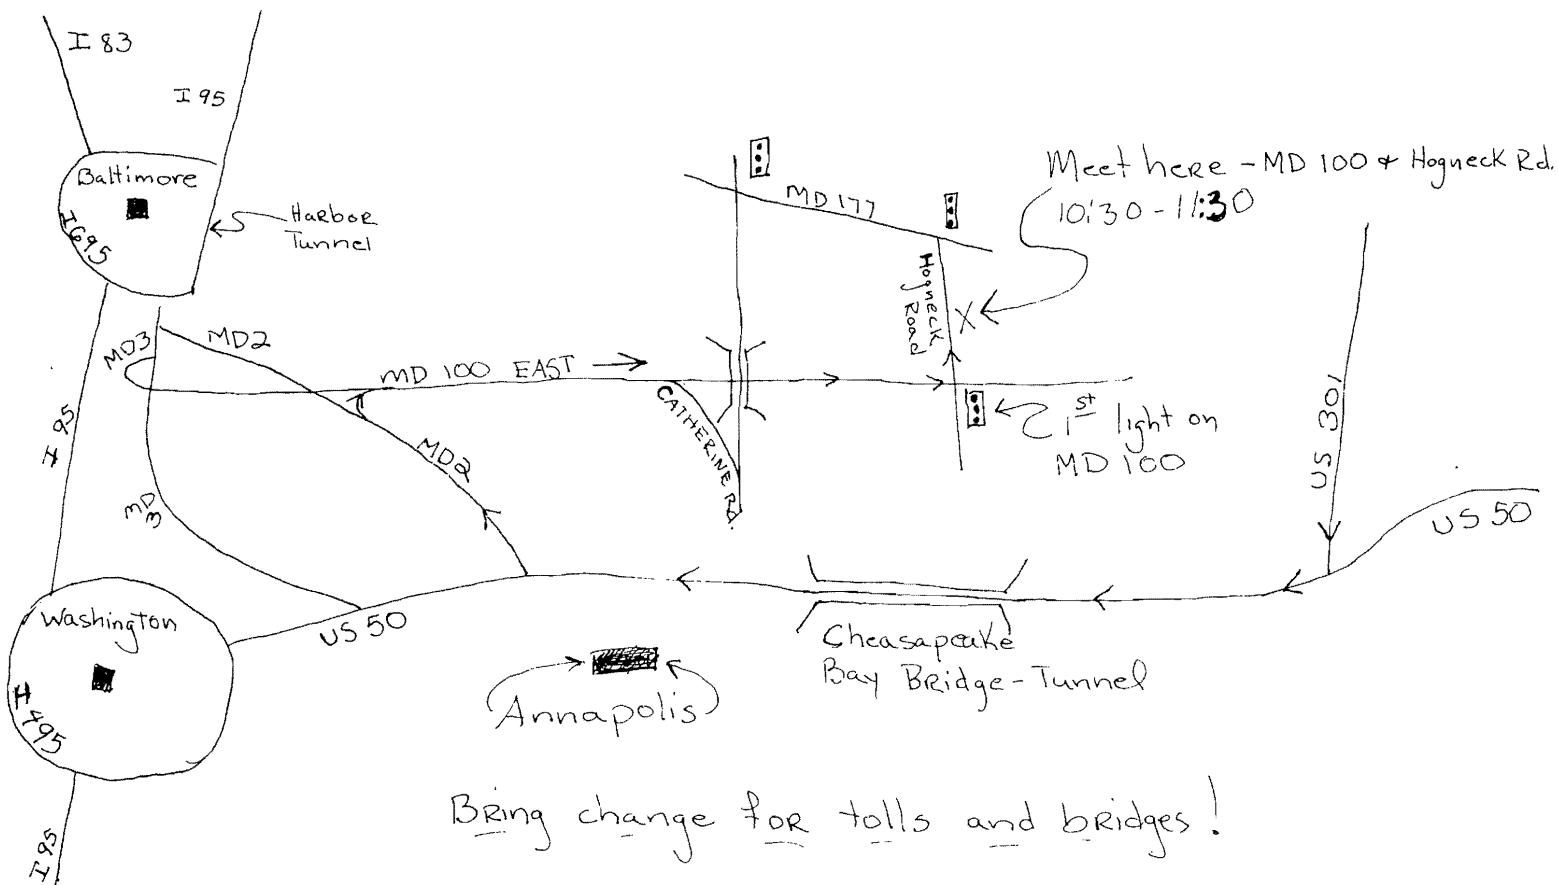 I 83
I 95
Baltimore
I 695
Harbor
Tunnel
MD 177
Meet here - MD 100 & Hogneck Rd.
10:30 - 11:30
Hogneck
Road
MD3
MD2
MD 100 EAST
CATHERINE RD.
1st light on
MD 100
US 301
US 50
I 95
MD2
MD
3
Washington
I 495
US 50
Cheasapeake
Bay Bridge-Tunnel
Annapolis
I 95
Bring change for tolls and bridges!